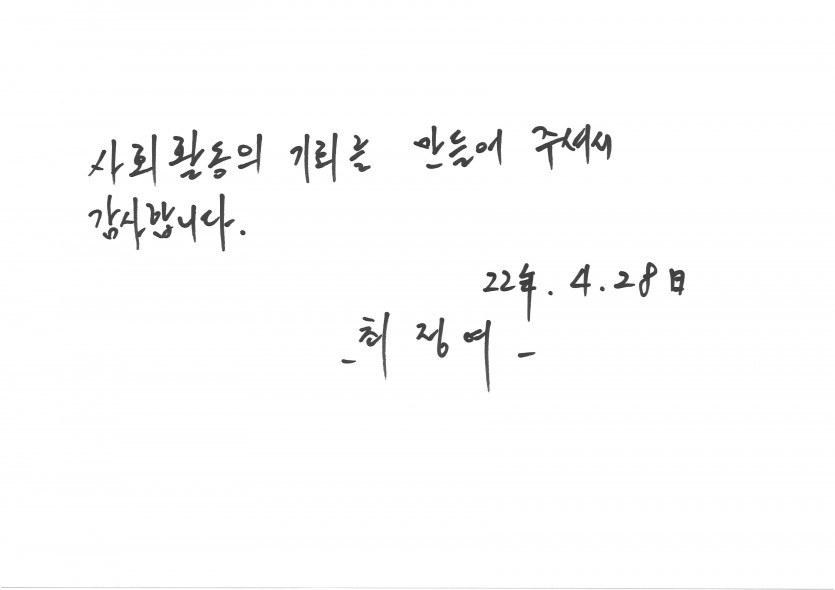 사회활동의 기회를 만들어 주셔서
감사합니다.
22年. 4. 28日
- 최정여 -